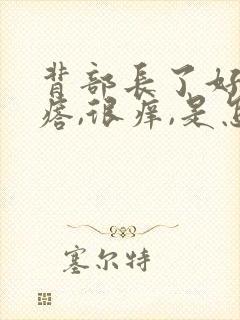 背部長了好
瘩,很痒,是怎
塞尔特